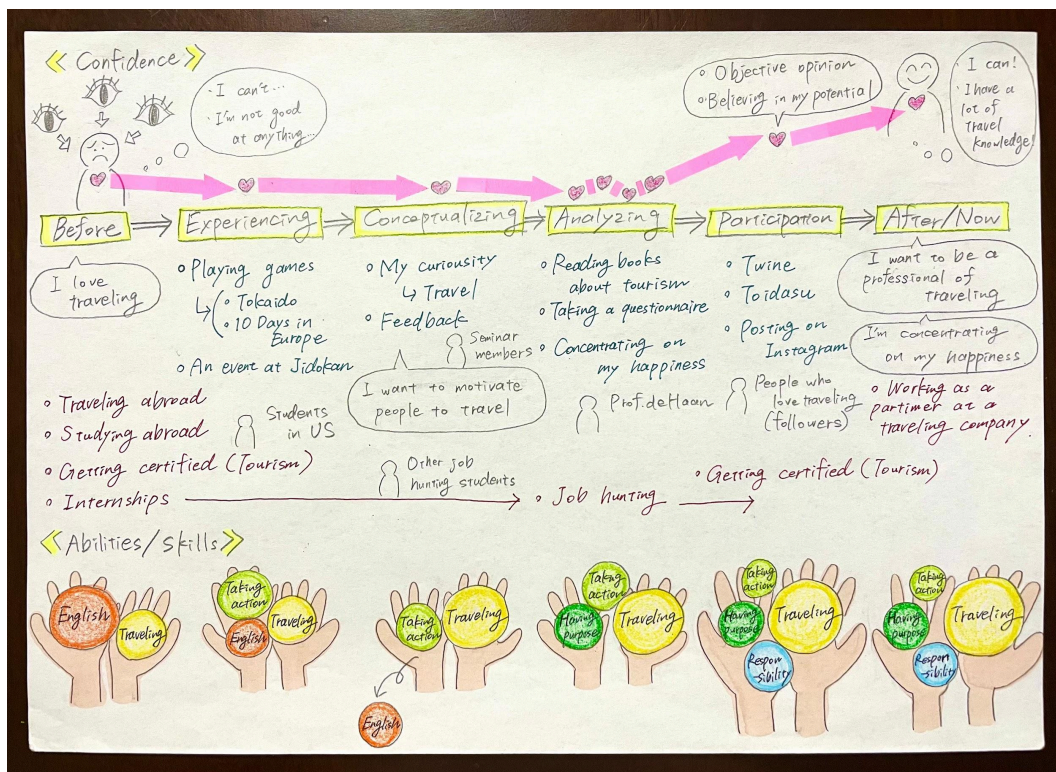 Confidence
・I can't...
・I'm not good
at anything...
・Objective opinion
・Believing in my potential
・I can!
・I have a
lot of
travel
knowledge!
Before
Experiencing
Conceptualizing
Analyzing
Participation
After/Now
I love
traveling
・Playing games
・Tokaido
・10 Days in
Europe
・An event at Jidokan
・My curiousity
Travel
・Feedback
Seminar
members
I want to motivate
people to travel
・Reading books
about tourism
・Taking a questionnaire
・Concentrating on
my happiness
Prof. deHaan
・Twine
・Toidasu
・Posting on
Instagram
People who
love traveling
(followers)
I want to be a
professional of
traveling
I'm concentrating
on my happiness
・Working as a
partimer at a
traveling company
・Traveling abroad
・Studying abroad
Students
in US
・Getting certified (Tourism)
・Internships
Other job
hunting students
・Job hunting
・Getting certified (Tourism)
Abilities/Skills
English
Traveling
Taking
action
English
Traveling
Taking
action
Traveling
English
Taking
action
Having
purpose
Traveling
Taking
action
Having
purpose
Traveling
Respon
-sibility
Taking
action
Having
purpose
Traveling
Respon
-sibility